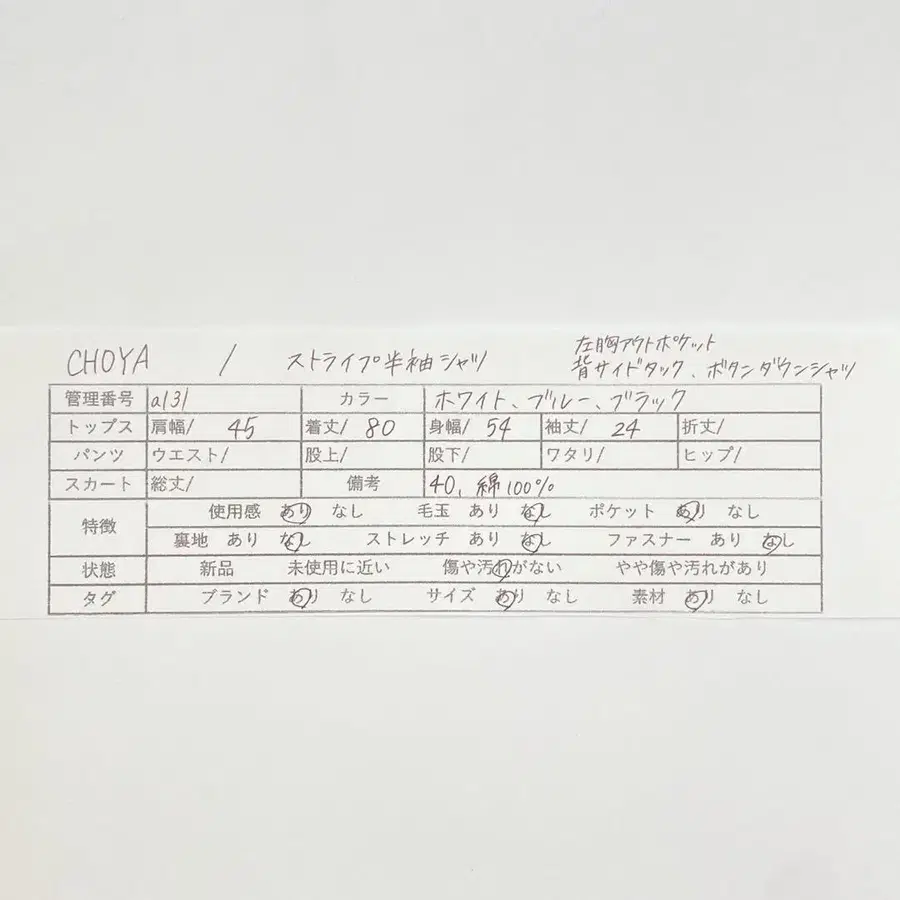 左胸アウトポケット
CHOYA / ストライプ半袖シャツ 背サイドタック、ボタンダウンシャツ
管理番号 a131 カラー ホワイト、ブルー、ブラック
トップス 肩幅/ 45 着丈/ 80 身幅/ 54 袖丈/ 24 折丈/
パンツ ウエスト/ 股上/ 股下/ ワタリ/ ヒップ/
スカート 総丈/ 備考 40、綿100%
特徴 使用感 あり なし 毛玉 あり なし ポケット あり なし
裏地 あり なし ストレッチ あり なし ファスナー あり なし
状態 新品 未使用に近い 傷や汚れがない やや傷や汚れがあり
タグ ブランド あり なし サイズ あり なし 素材 あり なし